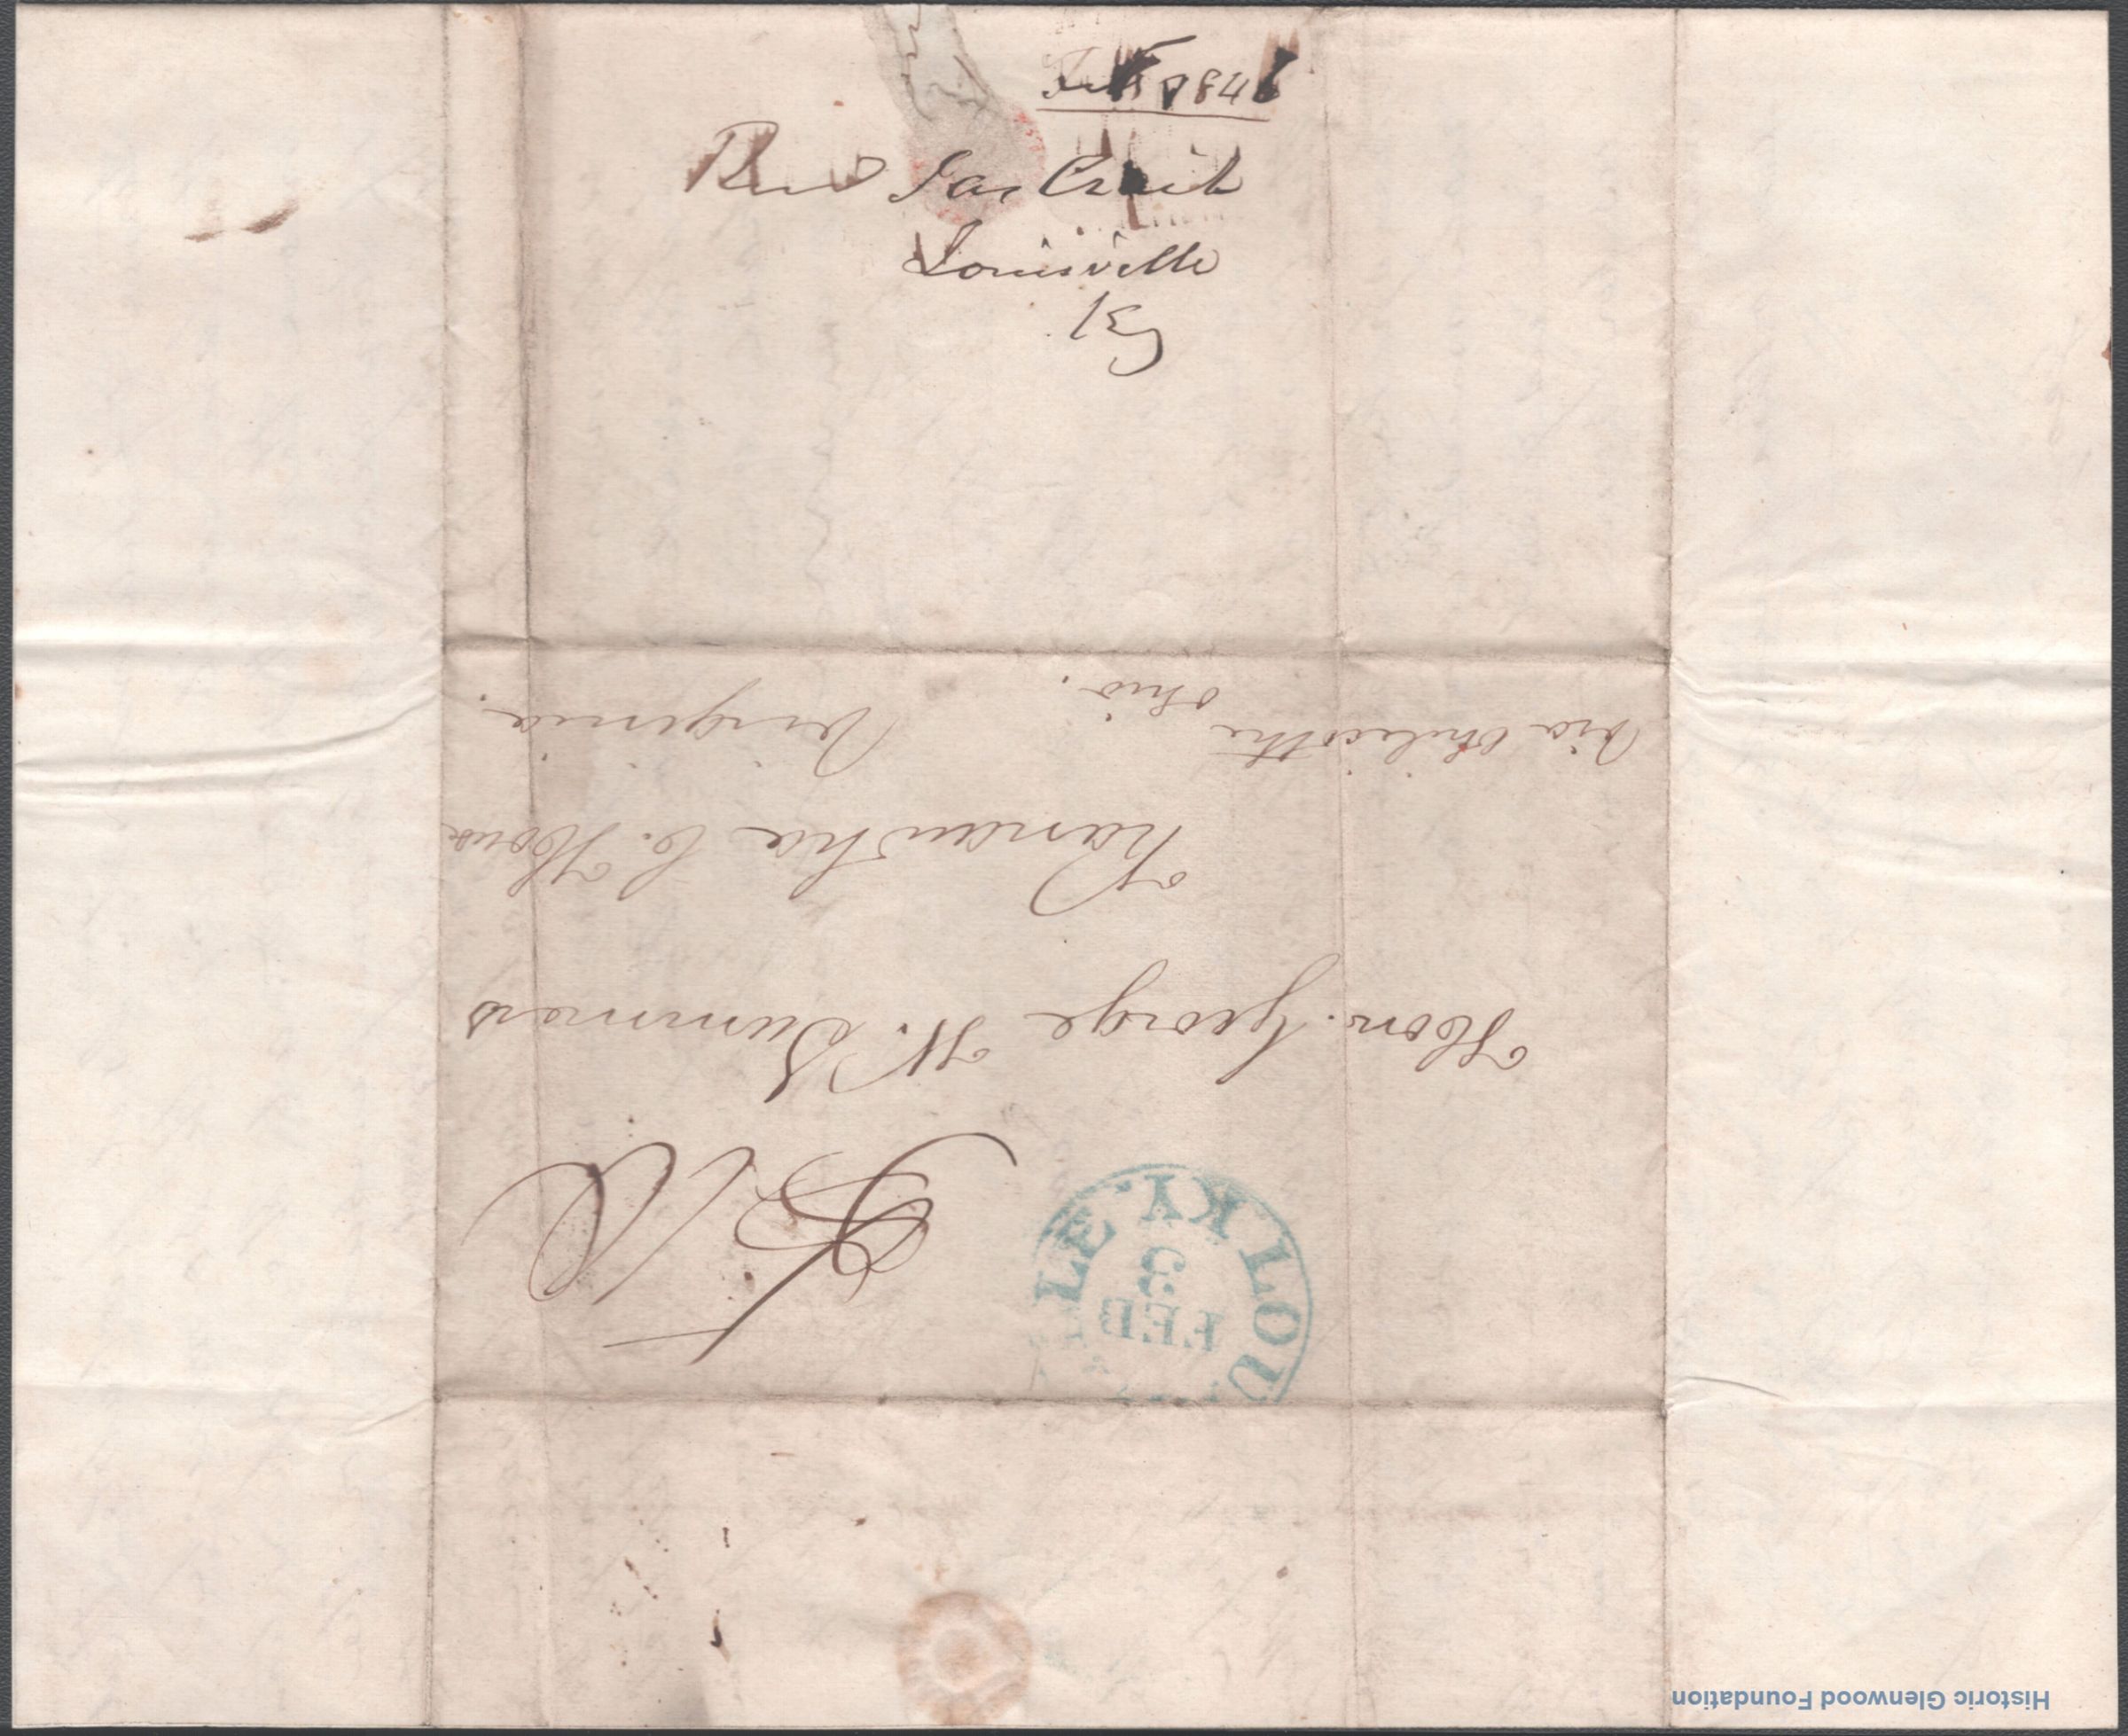 Feb 1846
Revd Jas Craik
Louisville
Ky
LOU LE KY.
FEB
3
Hon. George W. Summers
Kanawha C. House
Virginia.
Via Chilicothe
Ohio.
Historic Glenwood Foundation